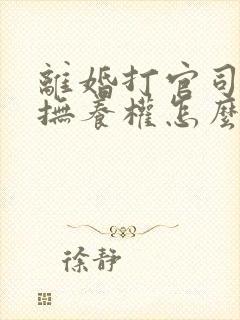 離婚打官司
撫養權怎麼
徐靜